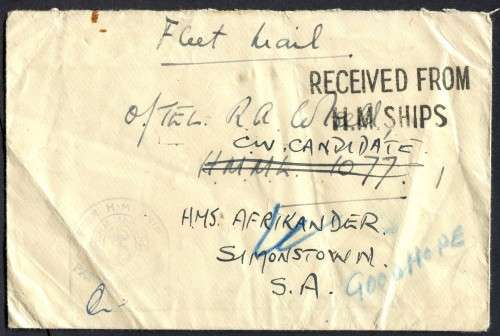 Fleet Mail
RECEIVED FROM
H.M. SHIPS
O/TEL. R.A.
C.W. CANDIDATE
H.M.M.L. 1077
H.M.S. AFRIKANDER.
SIMONSTOWN.
S.A.
GOODHOPE